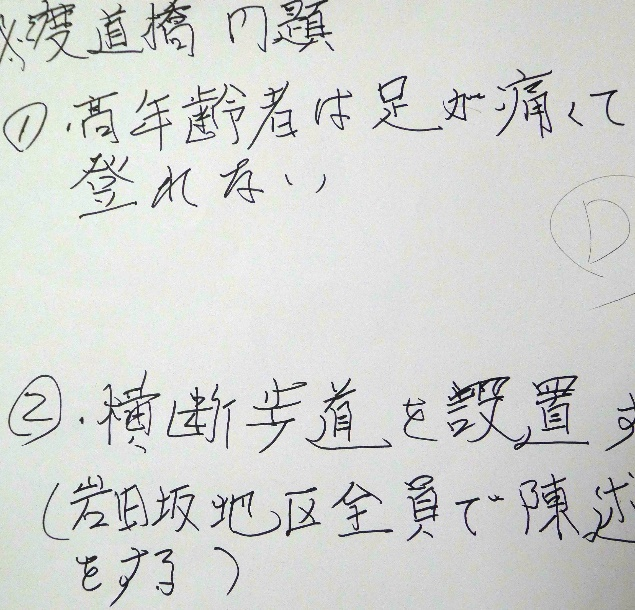 渡道橋問題
① ・高年齢者は足が痛くて
登れない
D
② ・横断歩道を設置す
(岩田坂地区全員で陳述
をする)